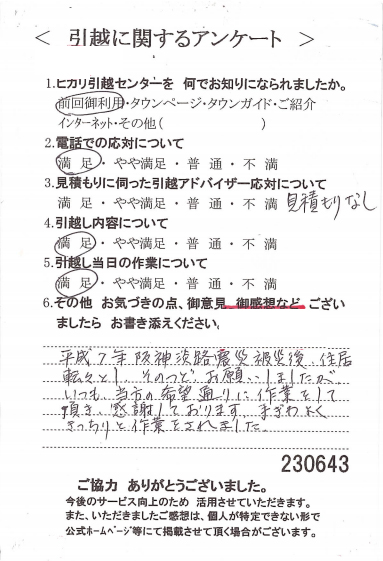 ＜ 引越に関するアンケート ＞
1.ヒカリ引越センターを 何でお知りになられましたか。
前回御利用・タウンページ・タウンガイド・ご紹介
インターネット・その他( )
2.電話での応対について
満 足・やや満足・普 通・不 満
3.見積もりに伺った引越アドバイザー応対について
満 足・やや満足・普 通・不 満 見積もりなし
4.引越し内容について
満 足・やや満足・普 通・不 満
5.引越し当日の作業について
満 足・やや満足・普 通・不 満
6.その他 お気づきの点、御意見、御感想など ござい
ましたら お書き添えください。
平成7年阪神淡路震災被災後、住居
転々とし、そのつど お願いしましたが、
いつも、当方の希望通りに作業をして
頂き、感謝しております。 てぎわよく
きっちりと作業をされました。
230643
ご協力 ありがとうございました。
今後のサービス向上のため 活用させていただきます。
また、いただきましたご感想は、個人が特定できない形で
公式ホームページ等にて掲載させて頂く場合がございます。